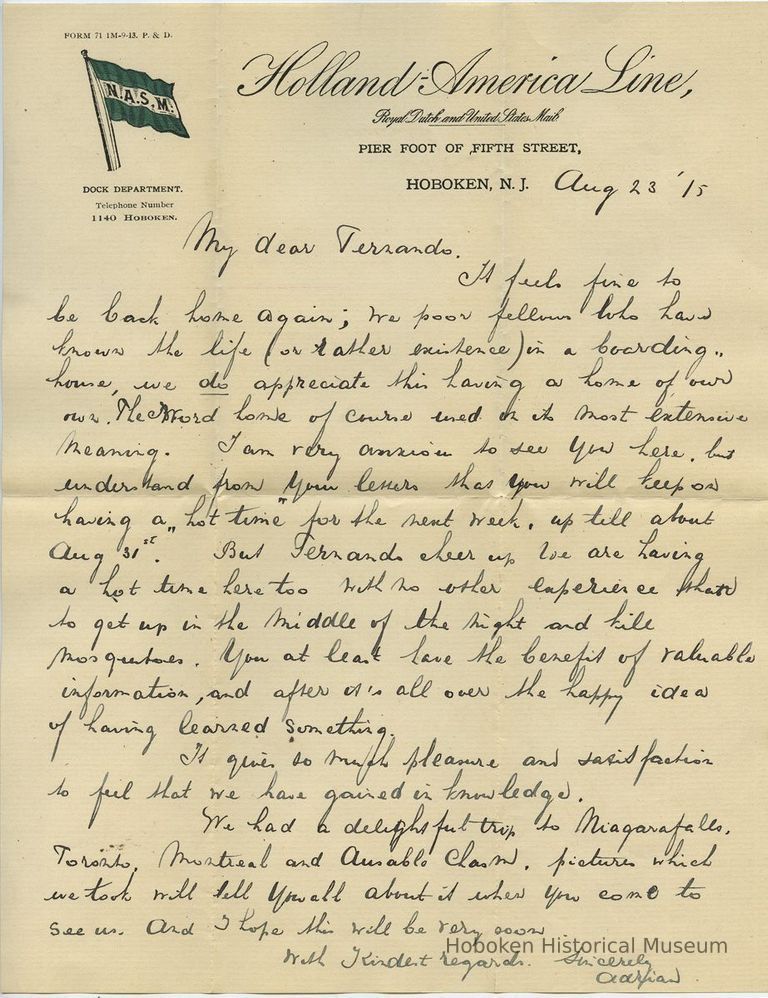 FORM 71 1M-9-13. P. & D.
N.A.S.M.
Holland-America Line,
Royal Dutch and United States Mail
PIER FOOT OF FIFTH STREET,
HOBOKEN, N. J. Aug 23 '15
DOCK DEPARTMENT.
Telephone Number
1140 HOBOKEN.
My dear Fernando.
It feels fine to
be back home again; we poor fellows who have
known the life (or rather existence) in a boarding„
house, we do appreciate this having a home of our
own. The Word home of course used in its most extensive
meaning. I am very anxious to see you here, but
understand from your letters that you will keep on
having a „hot time" for the next week, up till about
Aug 31st. But Fernando cheer up We are having
a hot time here too with no other experience than
to get up in the middle of the night and kill
mosquitoes. You at least have the benefit of valuable
information, and after it's all over the happy idea
of having learned something.
It gives so much pleasure and satisfaction
to feel that we have gained in knowledge.
We had a delightful trip to Niagarafalls,
Toronto, Montreal and Ausable Chasm, pictures which
we took will tell you all about it when you come to
see us. And I hope this will be very soon
With Kindest regards. Sincerely
Adrian
Hoboken Historical Museum